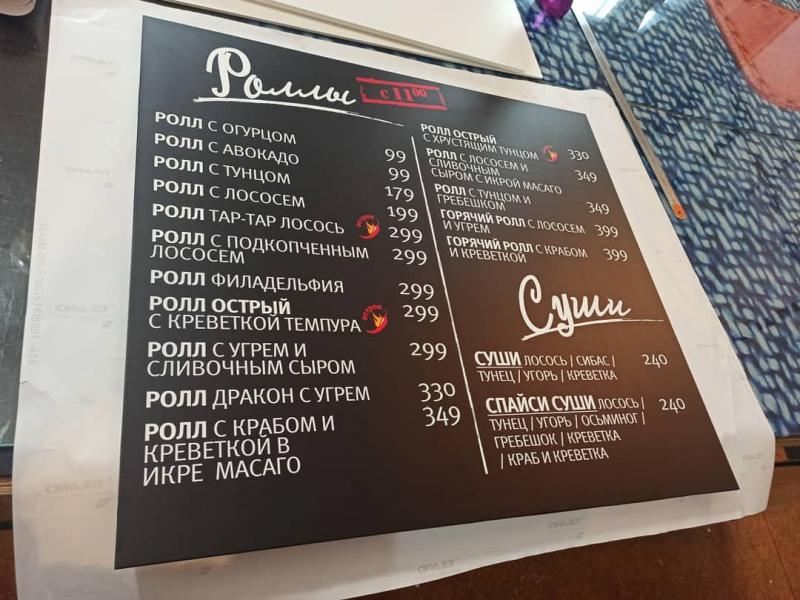 Роллы
с 11⁰⁰
РОЛЛ С ОГУРЦОМ 99
РОЛЛ С АВОКАДО 99
РОЛЛ С ТУНЦОМ 179
РОЛЛ С ЛОСОСЕМ 199
РОЛЛ ТАР-ТАР ЛОСОСЬ 299
РОЛЛ С ПОДКОПЧЕННЫМ
ЛОСОСЕМ 299
РОЛЛ ФИЛАДЕЛЬФИЯ 299
РОЛЛ ОСТРЫЙ
С КРЕВЕТКОЙ ТЕМПУРА 299
РОЛЛ С УГРЕМ И
СЛИВОЧНЫМ СЫРОМ 299
РОЛЛ ДРАКОН С УГРЕМ 330
РОЛЛ С КРАБОМ И 349
КРЕВЕТКОЙ В
ИКРЕ МАСАГО
РОЛЛ ОСТРЫЙ
С ХРУСТЯЩИМ ТУНЦОМ 330
РОЛЛ С ЛОСОСЕМ И
СЛИВОЧНЫМ 349
СЫРОМ С ИКРОЙ МАСАГО
РОЛЛ С ТУНЦОМ И
ГРЕБЕШКОМ 349
ГОРЯЧИЙ РОЛЛ С ЛОСОСЕМ
И УГРЕМ 399
ГОРЯЧИЙ РОЛЛ С КРАБОМ
И КРЕВЕТКОЙ 399
Суши
СУШИ ЛОСОСЬ / СИБАС / 240
ТУНЕЦ / УГОРЬ / КРЕВЕТКА
СПАЙСИ СУШИ ЛОСОСЬ / 240
ТУНЕЦ / УГОРЬ / ОСЬМИНОГ /
ГРЕБЕШОК / КРЕВЕТКА
/ КРАБ И КРЕВЕТКА